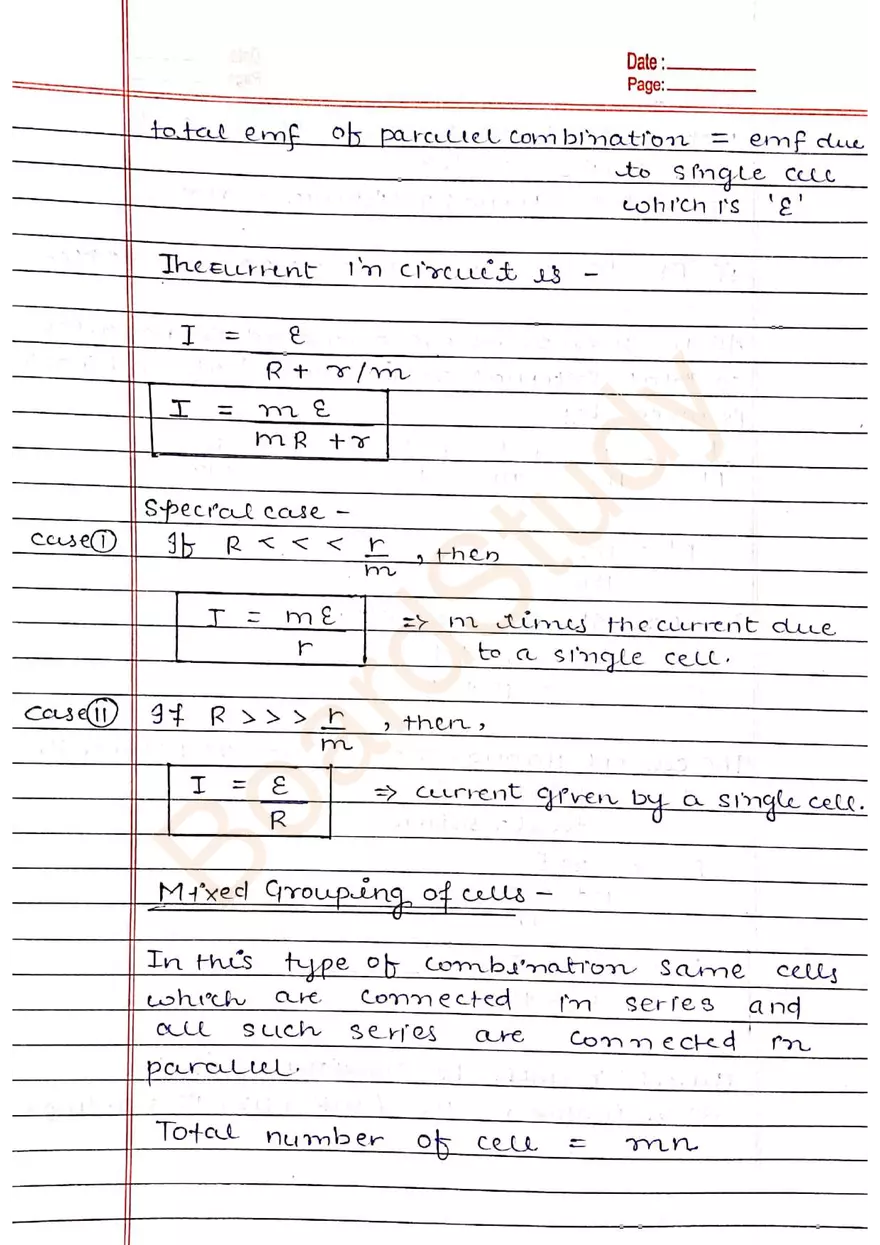 Date :
Page:
total emf of parallel combination = emf due
to single cell
which is 'ε'
The current in circuit is -
I = ε
R + r/m
I = m ε
mR + r
Special case -
case (I) If R < < < r
m , then
I = mε
r
=> m times the current due
to a single cell.
case (II) If R > > > r
m , then ,
I = ε
R
=> current given by a single cell.
Mixed Grouping of cells -
In this type of combination same cells
which are connected in series and
all such series are connected in
parallel.
Total number of cell = mn
BoardStudy